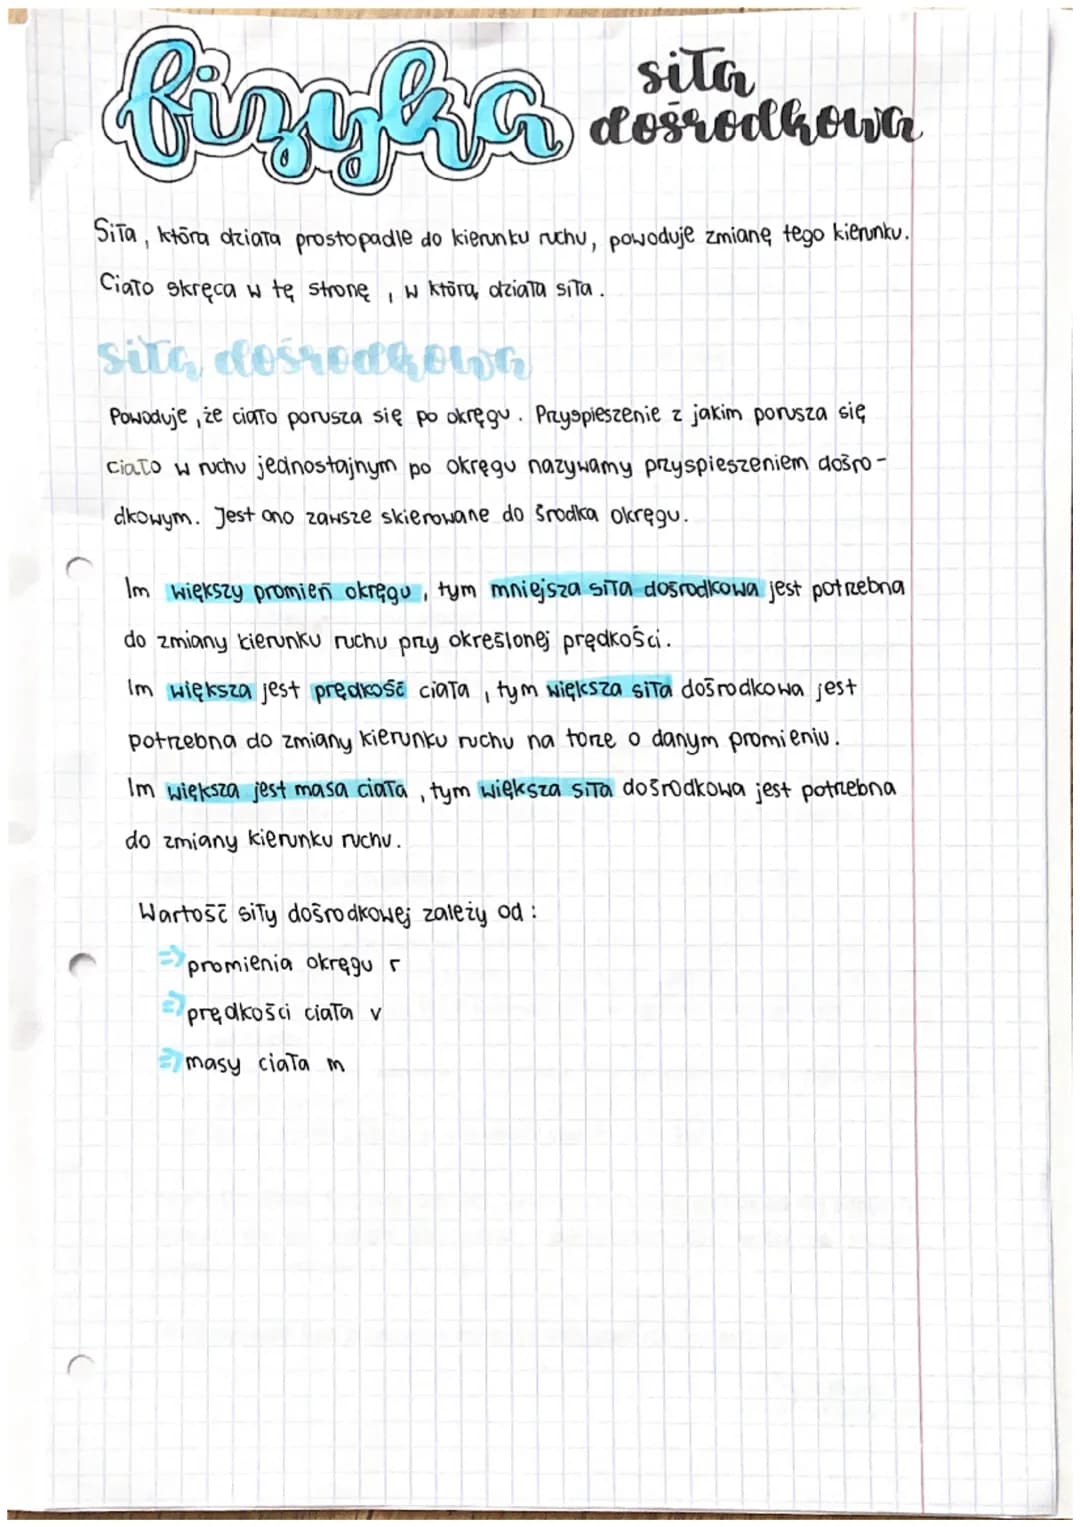 fizyka
siła
dośrodkowa
Siła, która działa prostopadle do kierunku ruchu, powoduje zmianę tego kierunku.
Ciało skręca w tę stronę, w którą działa siła.
siła dośrodkowa
Powoduje, że ciało porusza się po okręgu. Przyspieszenie z jakim porusza się
ciało w ruchu jednostajnym po okręgu nazywamy przyspieszeniem dośro-
dkowym. Jest ono zawsze skierowane do środka okręgu.
Im większy promień okręgu, tym mniejsza siła dośrodkowa jest potrzebna
do zmiany kierunku ruchu przy określonej prędkości.
Im większa jest prędkość ciała, tym większa siła dośrodkowa jest
potrzebna do zmiany kierunku ruchu na torze o danym promieniu.
Im większa jest masa ciała, tym większa siła dośrodkowa jest potrzebna
do zmiany kierunku ruchu.
Wartość siły dośrodkowej zależy od:
⇒ promienia okręgu r
⇒ prędkości ciała v
⇒ masy ciała m